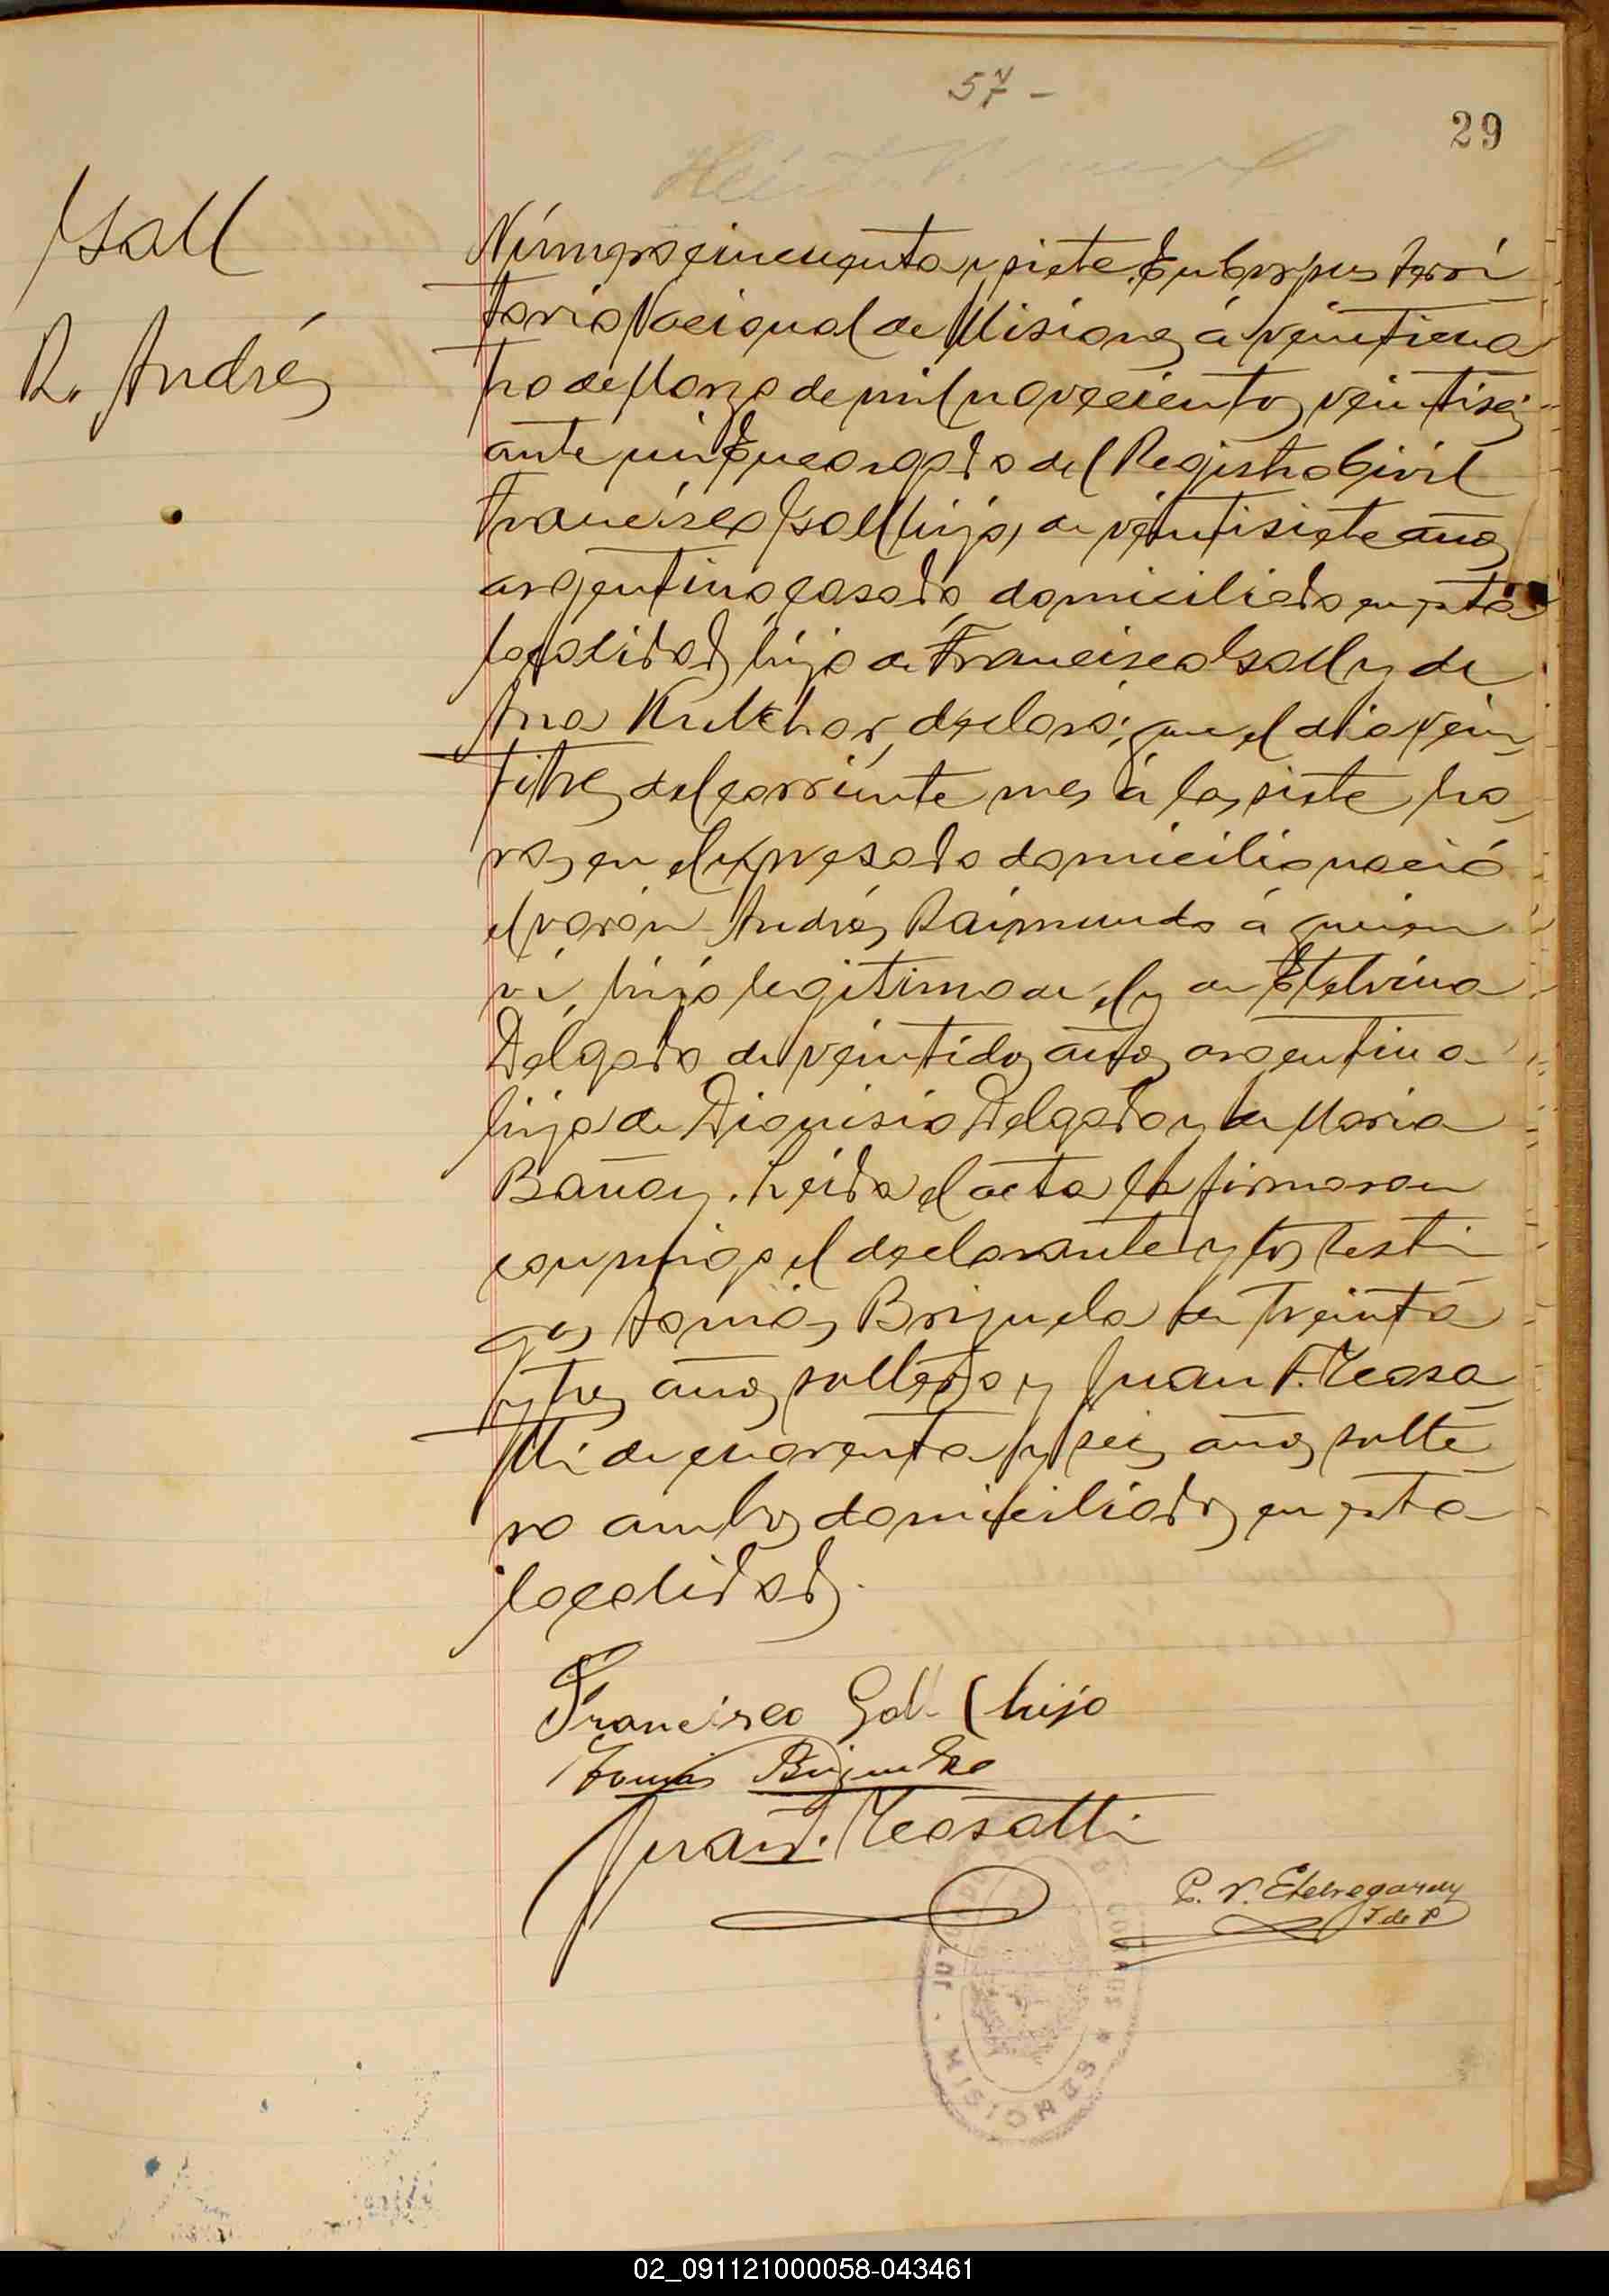 57 -
29
Gall
R. Andrés
Número cincuenta y siete. En Corpus Terri
torio Nacional de Misiones á veinticua
tro de Marzo de mil novecientos veintiseis
ante mi Encargado del Registro Civil
Francisco Gall hijo, de veintisiete años
argentino casado domiciliado en esta
localidad hijo de Francisco Gall y de
Ana declaró: que el dia vein
titres del corriente mes á las siete ho
ras en el expresado domicilio nació
el varón Andrés Raimundo á quien
ví, hijo legitimo de el y de Etelvina
Delgado de veintidos años argentina
hija de Dionisio Delgado y de Maria
Leida el acta la firmaron
conmigo el declarante y los testi
gos Tomás Brizuela de treinta
y tres años soltero y Juan F. Teosa
tti de cuarenta y seis años solte
ro ambos domiciliados en esta
localidad.
Francisco Gall (hijo
Tomás Brizuela
Juan F. Teosatti
P. V. Etchegaray
J de P
JUZGADO DE CORPUS * MISIONES -
02_091121000058-043461